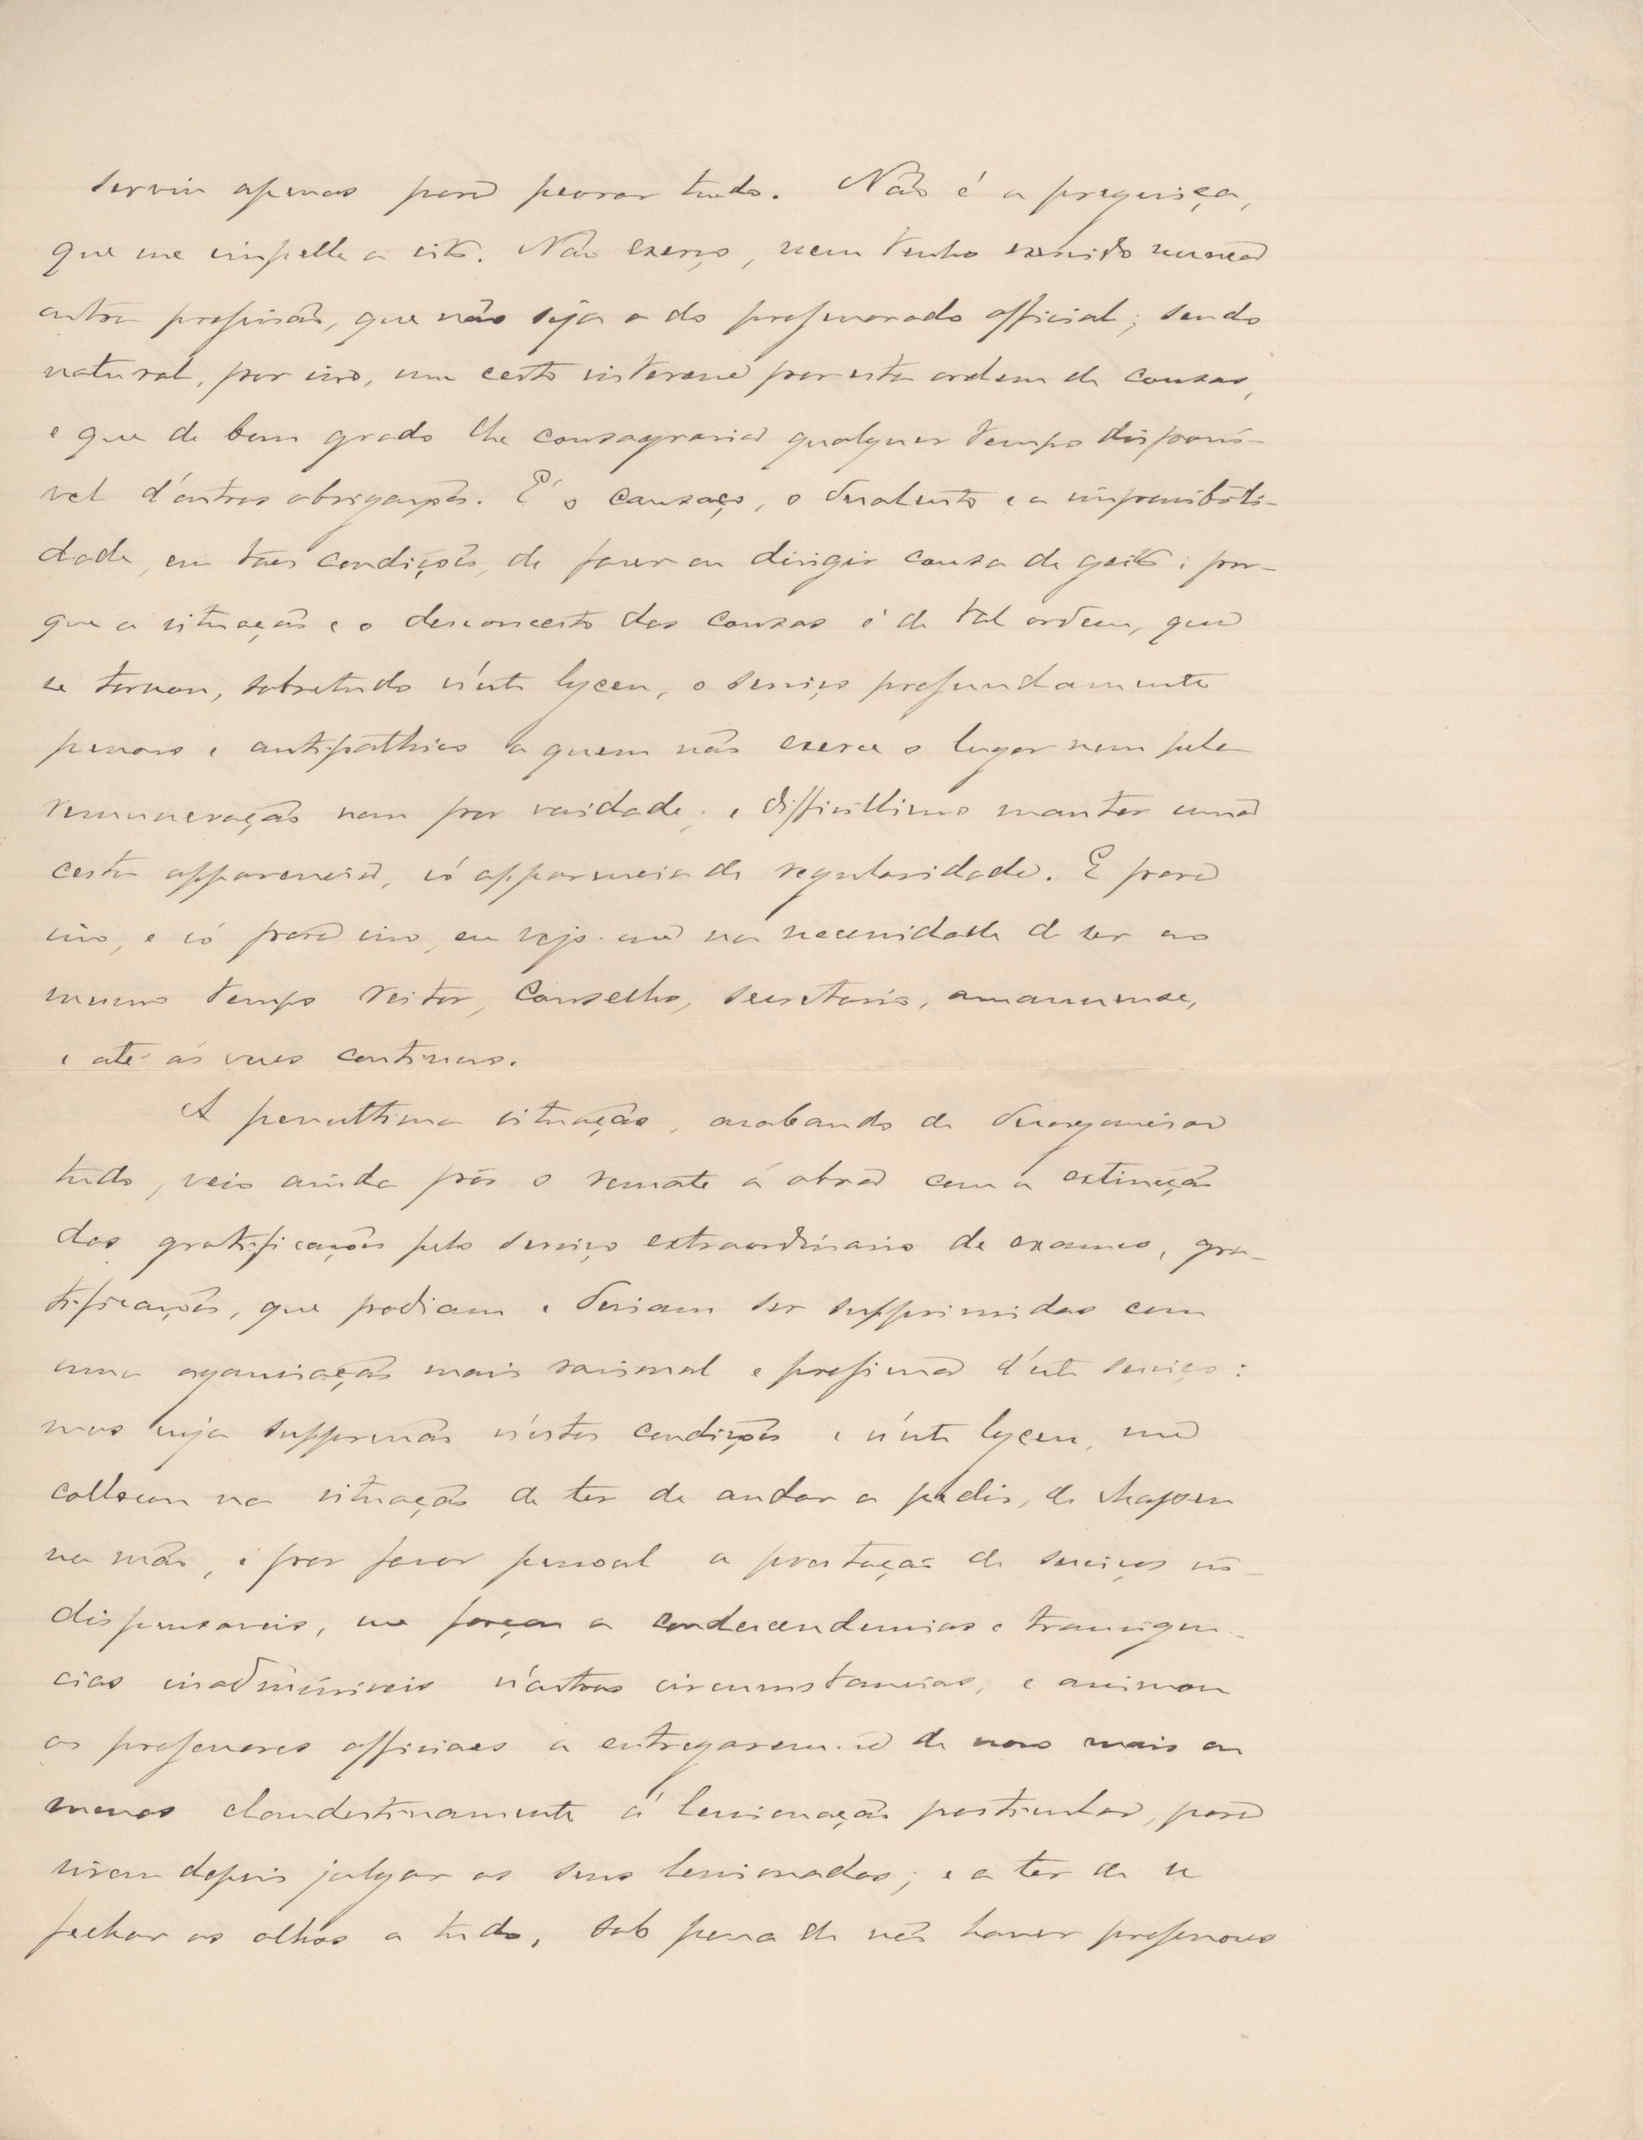 serviu apenas para peorar tudo. Não é a preguiça,
que me impelle a isto. Não exerço, nem tenho exercido nunca
outra profissão, que não seja a do professorado official; sendo
natural, por isso, um certo interesse por esta ordem de cousas,
e que de bom grado lhe consagraria qualquer tempo disponi-
vel d'outras obrigações. É o cansaço, o desalento e a impossibili-
dade, em taes condições, de fazer ou dirigir cousa de geito; por-
que a situação e o desconcerto das cousas é de tal ordem, que
se tornou, sobretudo n'este lyceu, o serviço profundamente
penoso e antipathico a quem não exerce o lugar nem pela
remuneração nem por vaidade; e difficillimo manter uma
certa apparencia, só apparencia de regularidade. E para
isso, e só para isso, eu vejo-me na necessidade de ser ao
mesmo tempo reitor, Conselho, secretario, amanuense,
e até ás vezes continuo.
A penultima situação, acabando de desorganisar
tudo, veio ainda pôr o remate á obra com a extincção
das gratificações pelo serviço extraordinario de exames, gra-
tificações, que podiam e deviam ser supprimidas com
uma organisação mais racional e proficua d'este serviço:
mas cuja suppressão n'estas condições e n'este lyceu, me
collocou na situação de ter de andar a pedir, de chapeu
na mão, e por favor pessoal a prestação de serviços in-
dispensaveis, me forçou a condescendencias e transigen-
cias inadmissiveis n'outras circumstancias, e animou
os professores officiaes a entregarem-se de novo mais ou
menos clandestinamente á leccionação particular, para
virem depois julgar os seus leccionados; e a ter de se
fechar os olhos a tudo, sob pena de não haver professores